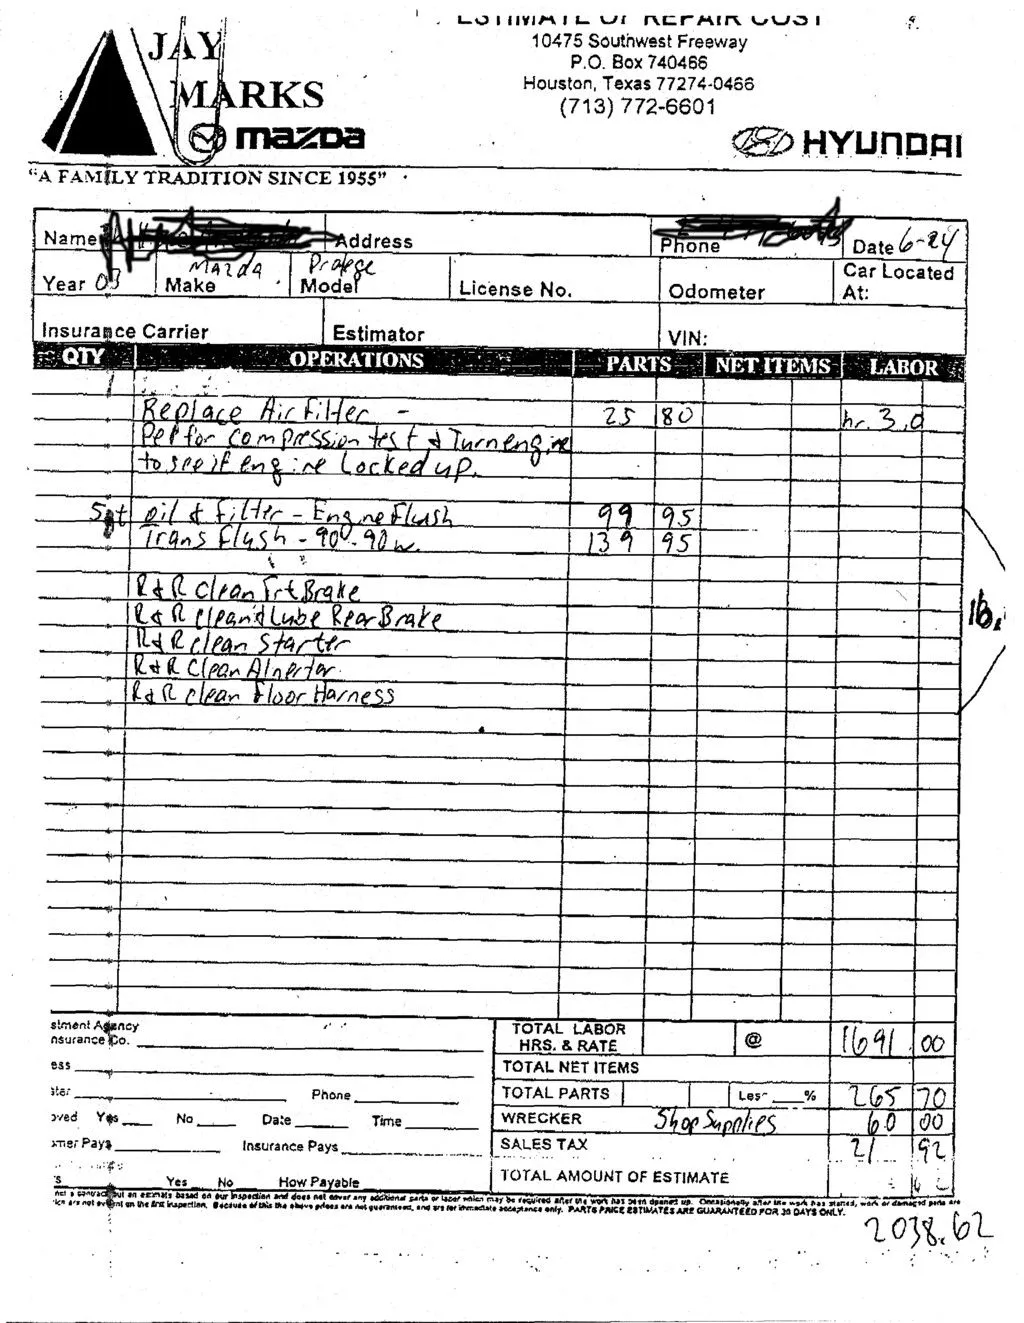 ESTIMATE OF REPAIR COST
10475 Southwest Freeway
P.O. Box 740466
Houston, Texas 77274-0466
(713) 772-6601
JAY
MARKS
mazda
HYUNDAI
"A FAMILY TRADITION SINCE 1955"
Name Address Phone Date 6-24
Year 03 Mazda Make Protege Model License No. Odometer Car Located At:
Insurance Carrier Estimator VIN:
QTY OPERATIONS PARTS NET ITEMS LABOR
Replace Air Filter - 25 80 hr. 3.0
Perfor compression test & Turn engine
to see if engine Locked up.
5qt oil & filter - Engine Flush 99 95
Trans Flush - 90 - 90w. 139 95
R & R clean Frt Brake
R & R clean & Lube Rear Brake
R & R clean Starter
R & R Clean Alnertor
R & R clean Floor Harness
16.
stment Agency
nsurance Co.
ess
Phone
oved Yes No Date Time
omer Pays Insurance Pays
Yes No How Payable
TOTAL LABOR HRS. & RATE @ 1691 00
TOTAL NET ITEMS
TOTAL PARTS Less % 265 70
WRECKER Shop Supplies 60 00
SALES TAX 21 92
TOTAL AMOUNT OF ESTIMATE
not a contract but an estimate based on our inspection and does not cover any additional parts or labor which may be required after the work has been opened up. Occasionally after the work has started, worn or damaged parts are
not evident on the first inspection. Because of this the above prices are not guaranteed, and are for immediate acceptance only. PARTS PRICE ESTIMATES ARE GUARANTEED FOR 30 DAYS ONLY.
2038.62